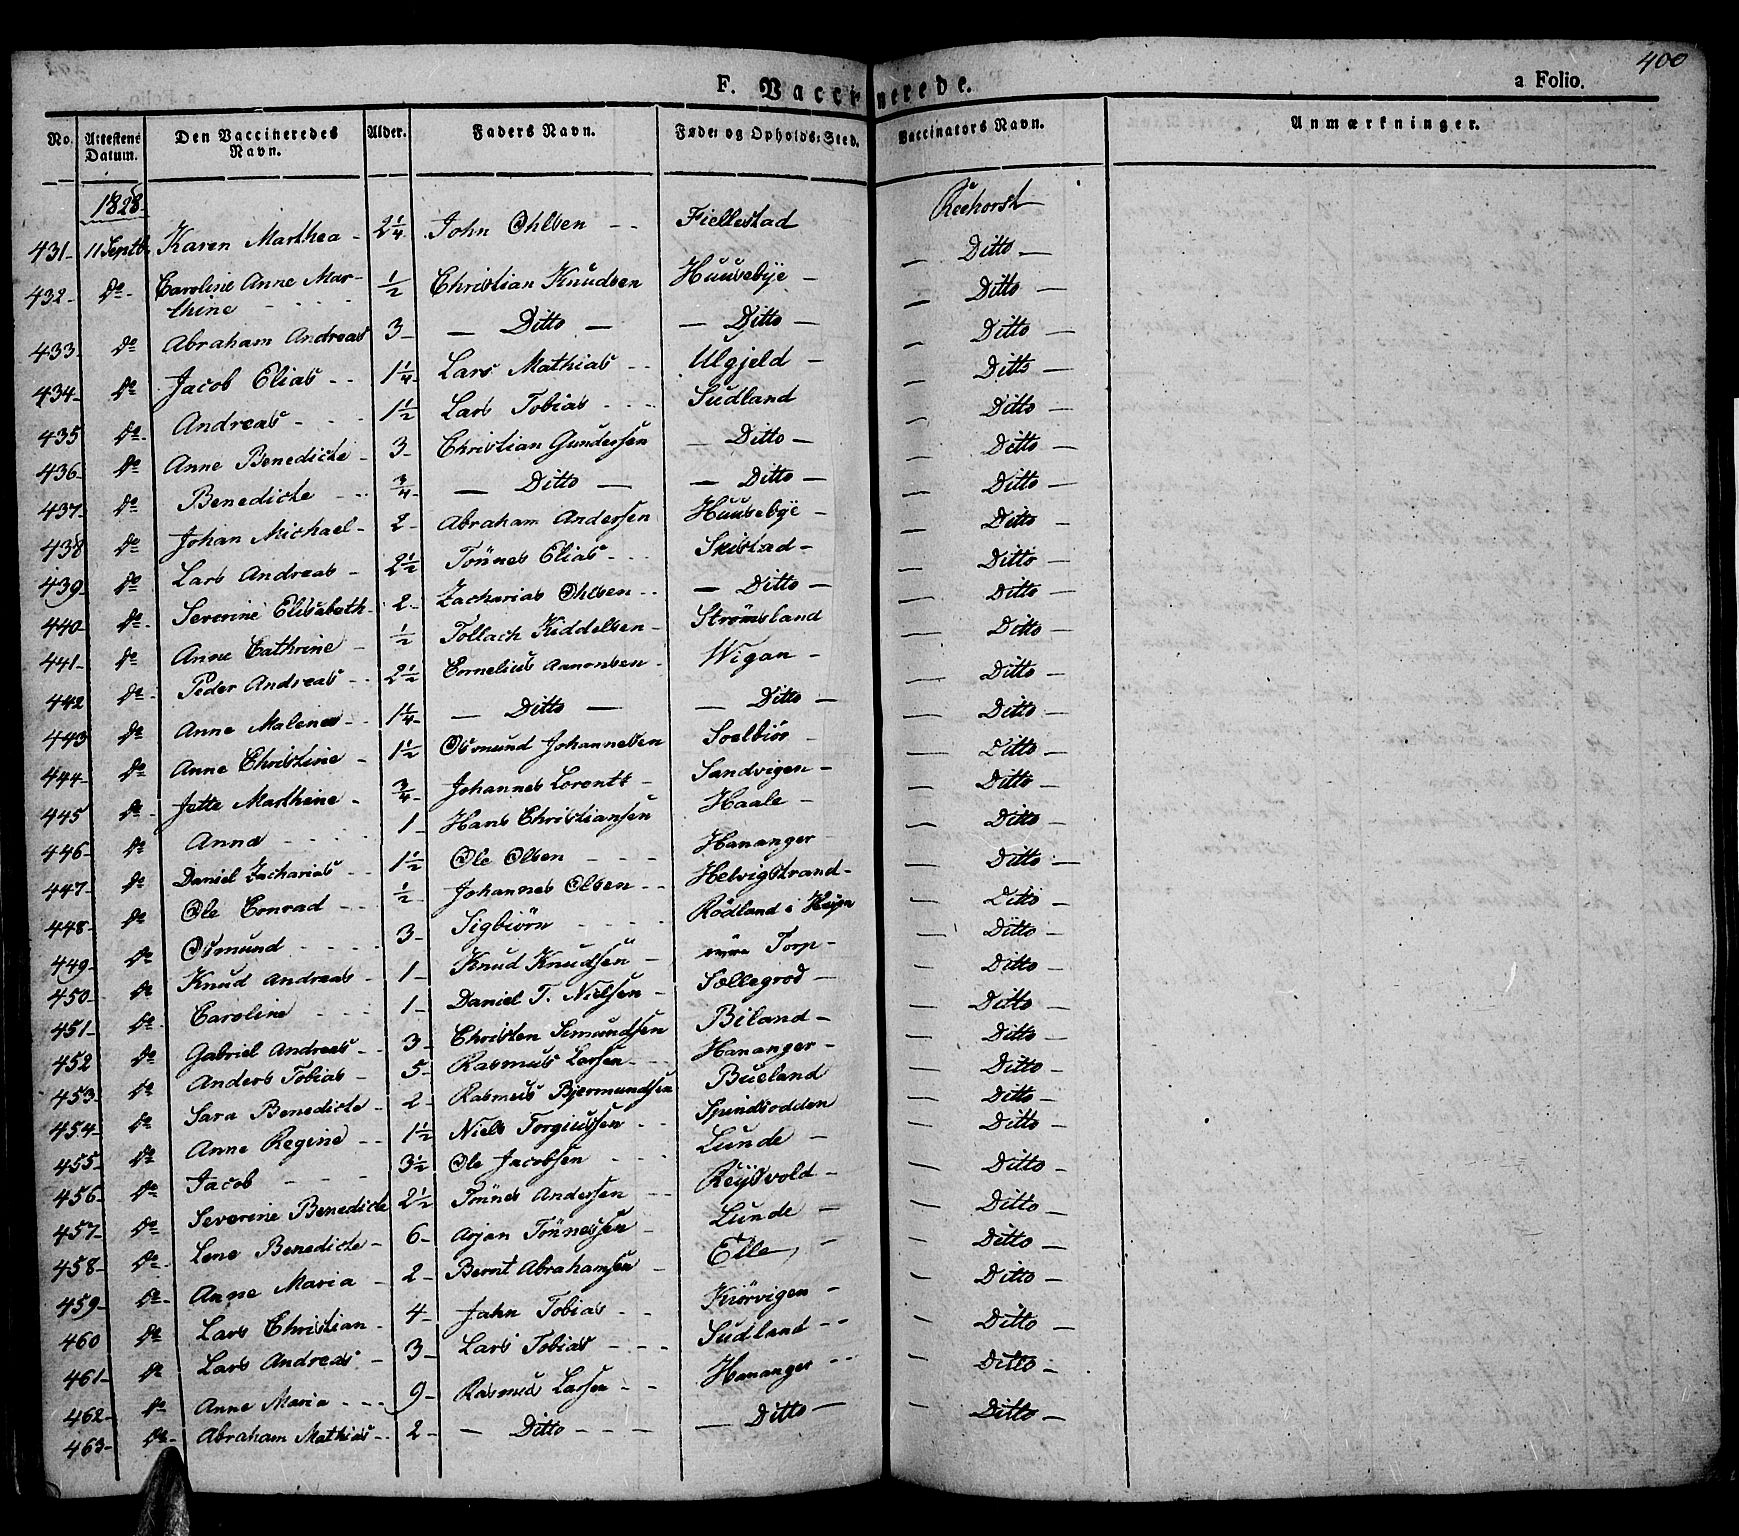 400
F. Vaccinerede.
a Folio.
No. Attestens Datum. Den Vaccineredes Navn. Alder. Faders Navn. Føde- og Opholds-Sted. Vaccinators Navn. Anmærkninger.
1828.
431- 11 Septb. Karen Marthea - 2 1/4 John Ohlsen - - Fiellestad Reehorst
432- do- Caroline Anne Mar- 1/2 Christian Knudsen Huusebye - — Ditto —
thine - - - -
433 do Abraham Andreas 3- — Ditto — — Ditto — — Ditto —
434- do Jacob Elias - - 1 1/4 Lars Mathias - - Ulgjeld - — Ditto —
435 do- Andreas - - - 1 1/2 Lars Tobias - - - Sudland — Ditto —
436- do Anne Benedicte - 3- Christian Gundersen — Ditto — — Ditto —
437- do Benedicte - - - 3/4 — Ditto — — Ditto — — Ditto —
438 do Johan Michael - 2- Abraham Andersen Huusebye - — Ditto —
439- do Lars Andreas - 2 1/2 Tönnes Elias - - - Skistad - — Ditto —
440- do- Severine Elisabeth - 2- Zacharias Ohlsen - - — Ditto — — Ditto —
441- do Anne Cathrine - 1/2 Tollach Keddelsen - Strømsland — Ditto —
442 do- Peder Andreas - - 2 1/2 Cornelius Aanonsen - Wigan - — Ditto —
443 do Anne Malene - - 1 1/4 — Ditto — — Ditto — — Ditto —
444- do Anne Christine - 1 1/2 Osmund Johannesen Soelbiör - — Ditto —
445 do- Jette Marthine - 3/4 Johannes Lorentz - Sandvigen - — Ditto —
446- do Anna - - - 1- Hans Christiansen Haale - — Ditto —
447- do Daniel Zacharias - - 1 1/2 Ole Olsen - - - Hananger — Ditto —
448- do Ole Conrad - - - 1/2 Johannes Olsen - - Helvigstrand - — Ditto —
449- do Osmund - - - - 3- Sigbiörn - - - - Rödland i — Ditto —
450- do Knud Andreas - - 1- Knud Knudsen - Torp - — Ditto —
451- do- Caroline - - - 1- Daniel T. Nielsen - Sællegrod - — Ditto —
452 do Gabriel Andreas - - 3- Christen Simundsen Biland - — Ditto —
453- do Anders Tobias - 5- Rasmus Larsen - - - Hananger - — Ditto —
454- do Sara Benedicte - 2- Rasmus Bjermundsen Bueland — Ditto —
455- do Anne Regine - - 1 1/2 Niels Torgiussen - - Spindsodden — Ditto —
456- do- Jacob - - - 3 1/2 Ole Jacobsen - - - Lunde - — Ditto —
457- do- Severine Benedicte 2 1/2 Tönnes Andersen - - — Ditto —
458- do- Lene Benedicte - 6- Arjan Tönnessen - Lunde - — Ditto —
459- do- Anne Maria - 2- Bernt Abrahamsen - Elle, - — Ditto —
460 do- Lars Christian - 4- Jahn Tobias - - Kiörvigen - — Ditto —
461- do Lars Andreas - 3- Lars Tobias - - - Sudland - - — Ditto —
462- do- Anne Maria - - - 9- Rasmus Larsen - - Hananger - - — Ditto —
463- do- Abraham Mathias - - 2- — Ditto - - - — Ditto — — Ditto —